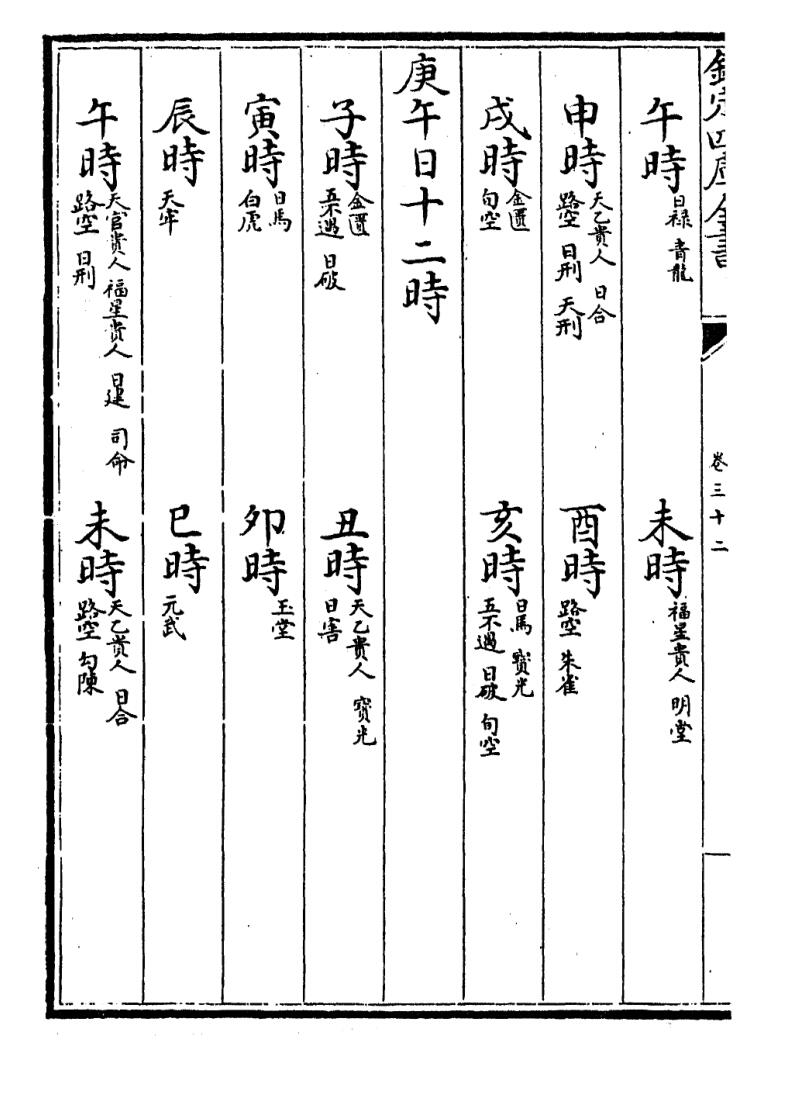 欽定四庫全書
卷三十二
午時 日祿 青龍 未時 福星貴人 明堂
申時 天乙貴人 日合 路空 日刑 天刑 酉時 路空 朱雀
戌時 金匱 旬空 亥時 日馬 寳光 五不遇 日破 旬空
庚午日十二時
子時 金匱 五不遇 日破 丑時 天乙貴人 寳光 日害
寅時 日馬 白虎 卯時 玉堂
辰時 天牢 巳時 元武
午時 天官貴人 福星貴人 日建 司命 路空 日刑 未時 天乙貴人 日合 路空 勾陳